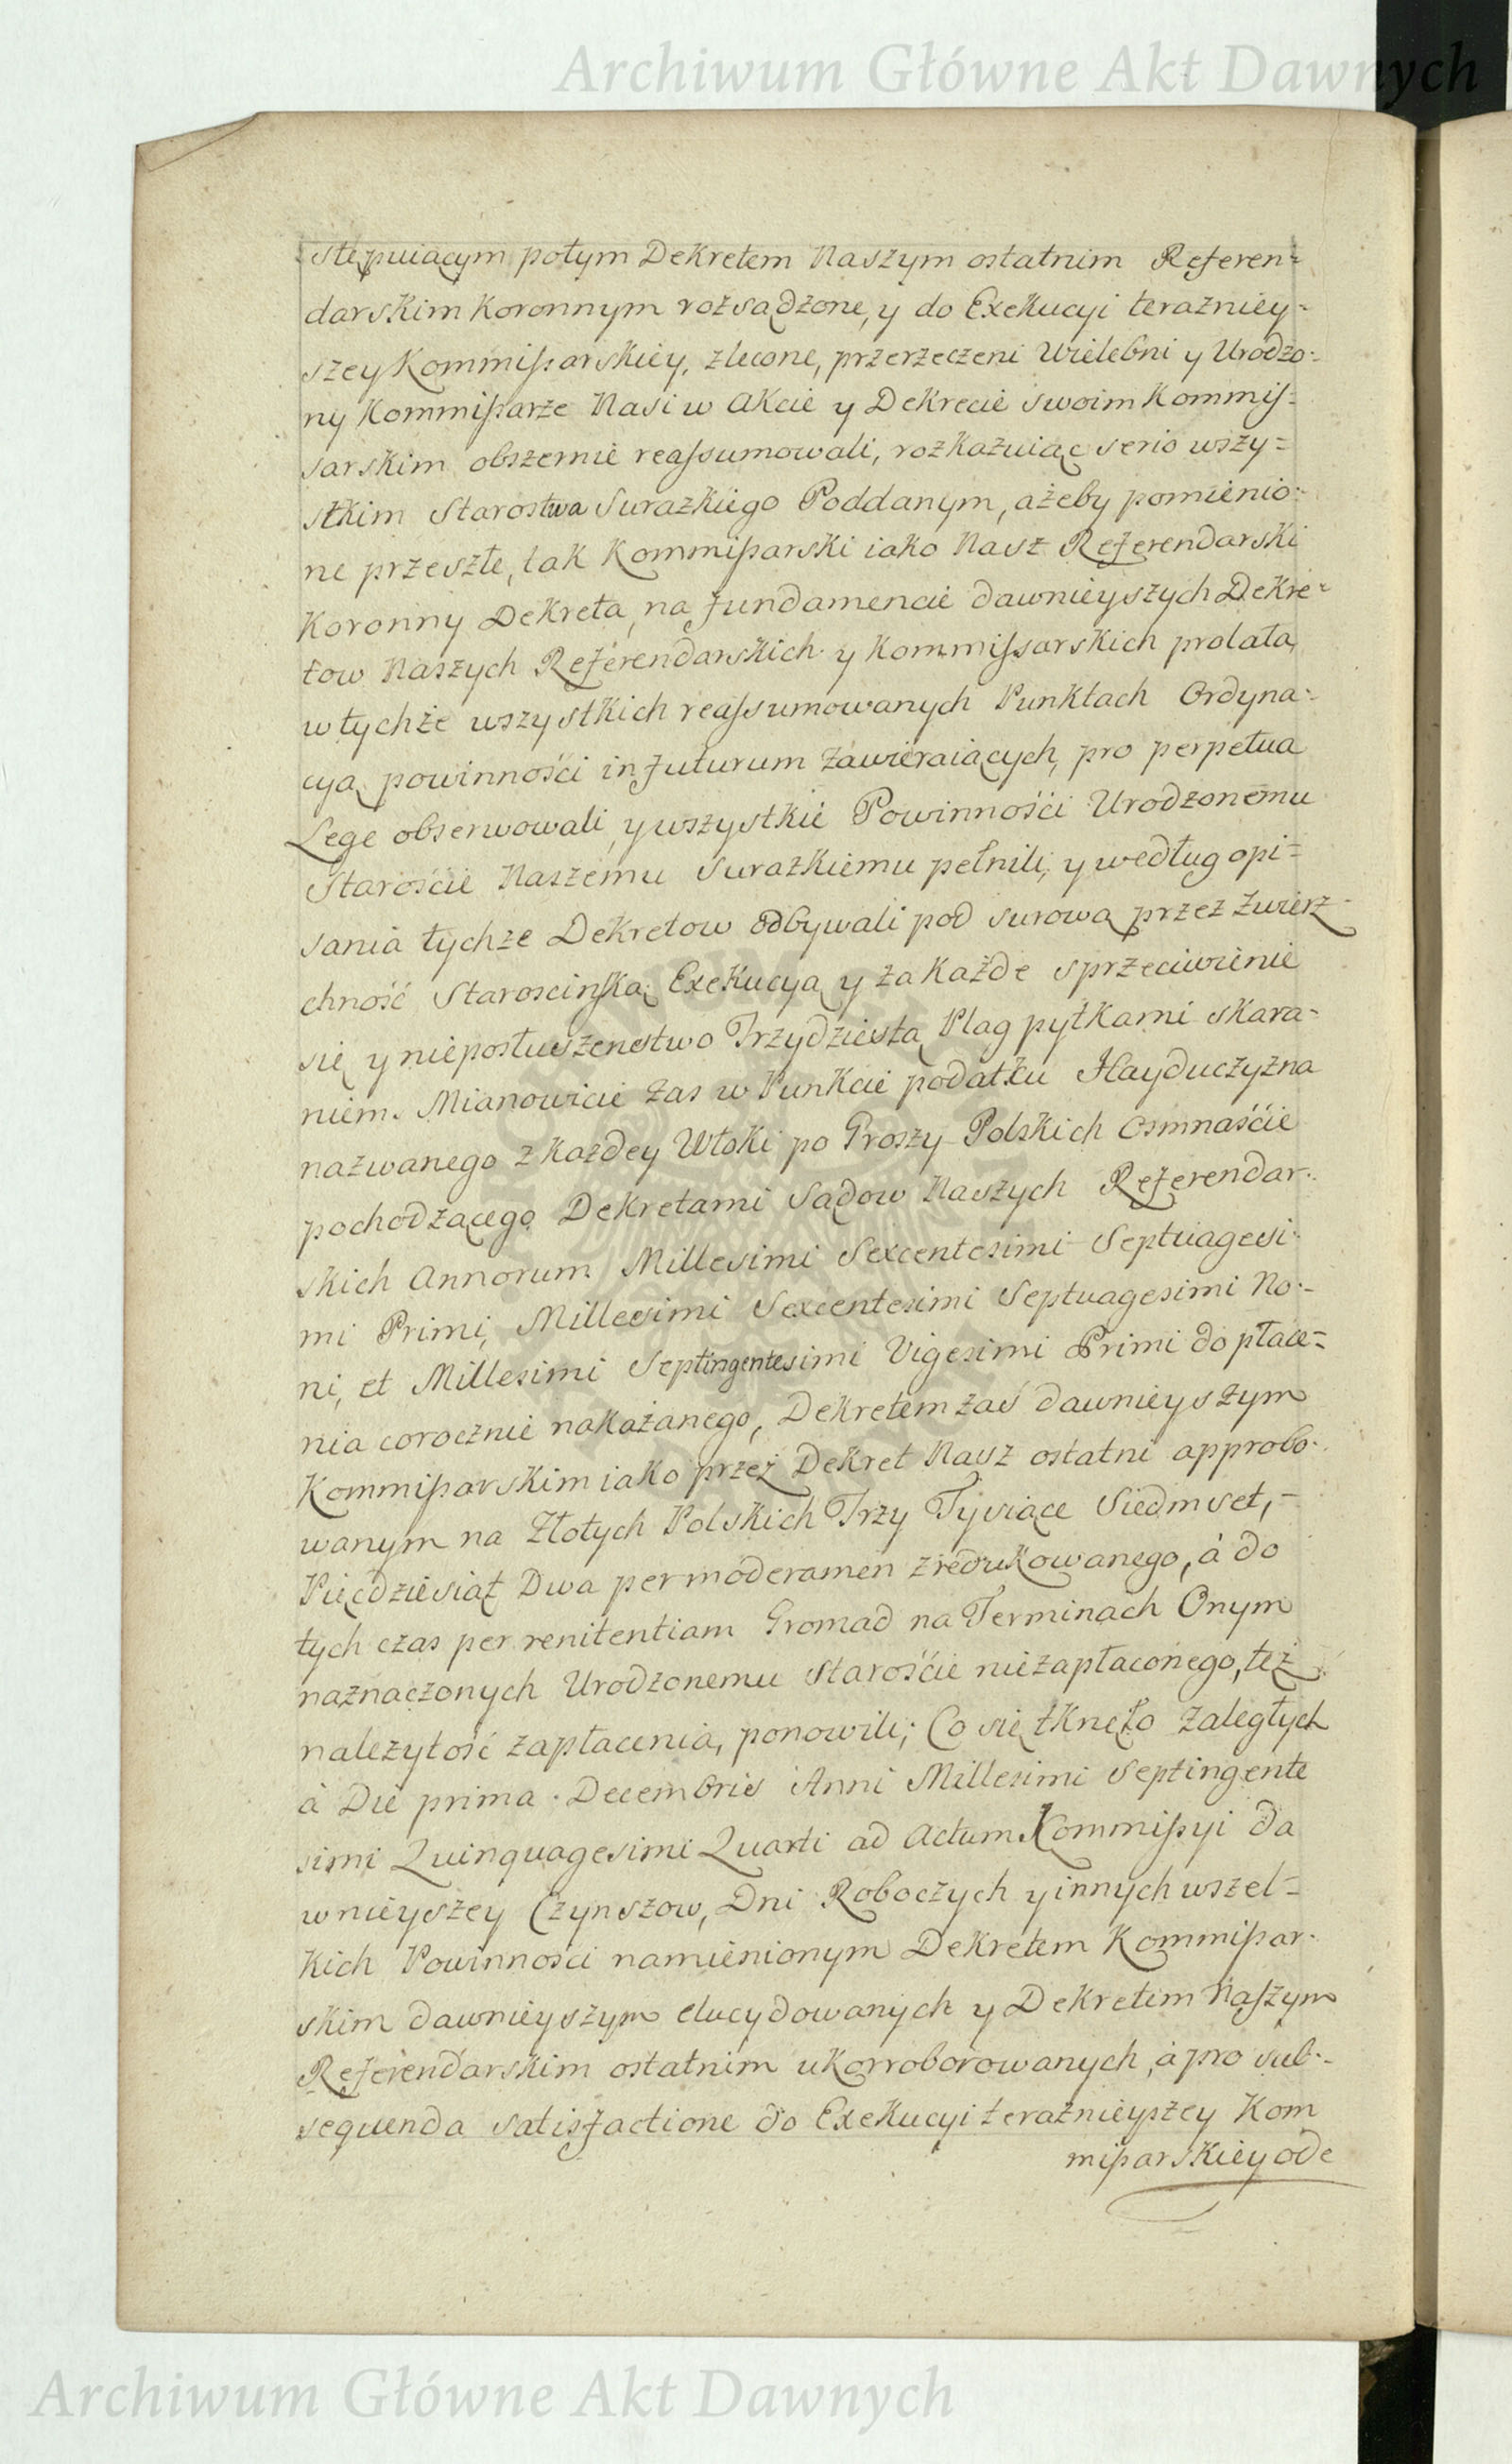 Archiwum Główne Akt Dawnych
stępuiącym potym Dekretem Naszym ostatnim Referen=
darskim Koronnym rozsądzone, y do Exekucyi teraźniey=
szey Kommißarskiey, zlecone, przerzeczeni Wielebni y Urodzo=
ny Kommißarze Nasi w Akcie y Dekrecie swoim Kommis=
sarskim obszernie reassumowali, rozkazuiąc serio wszy=
stkim Starostwa Surazkiego Poddanym, ażeby pomienio=
ne przeszłe, tak Kommißarski iako Nasz Referendarski
Koronny Dekreta, na fundamencie dawnieyszych Dekre=
tow Naszych Referendarskich y Kommissarskich prolata,
w tychże wszystkich reassumowanych Punktach Ordyna=
cyą powinności in futurum zawieraiących, pro perpetua
Lege obserwowali, y wszystkie Powinnośći Urodzonemu
Starośćie Naszemu Surazkiemu pełnili, y według opi=
sania tychże Dekretow odbywali pod surową przez Zwierz=
chność Starościnską Exekucyą y za każde sprzeciwienie
się y nieposłuszenstwo Trzydziestą Plag pytkami skara=
niem. Mianowicie zas w Punkcie podatku Hayduczyzna
nazwanego z każdey Włoki po Groszy Polskich Osmnaśćie
pochodzącego Dekretami Sądow Naszych Referendar=
skich Annorum Millesimi Sexcentesimi Septuagesi=
mi Primi, Millesimi Sexcentesimi Septuagesimi No=
ni, et Millesimi Septingentesimi Vigesimi Primi do płace=
nia corocznie nakazanego, Dekretem zaś dawnieyszym
Kommißarskim iako przez Dekret Nasz ostatni approbo=
wanym na Złotych Polskich Trzy Tysiące Siedmset,
Pięcdziesiąt Dwa per moderamen zredukowanego, à do
tych czas per renitentiam Gromad na Terminach Onym
naznaczonych Urodzonemu Starośćie niezapłaconego, też
należytość zapłacenia, ponowili; Co się tknęło zaległych
à Die prima Decembris Anni Millesimi Septingente
simi Quinquagesimi Quarti ad Actum Kommißyi da
wnieyszey Czynszow, Dni Roboczych y innych wszel=
kich Powinności namienionym Dekretem Kommißar=
skim dawnieyszym elucydowanych y Dekretem Naszym
Referendarskim ostatnim ukorroborowanych, à pro sub=
sequenda satisfactione do Exekucyi teraźnieyszey Kom
mißarskiey ode
Archiwum Główne Akt Dawnych